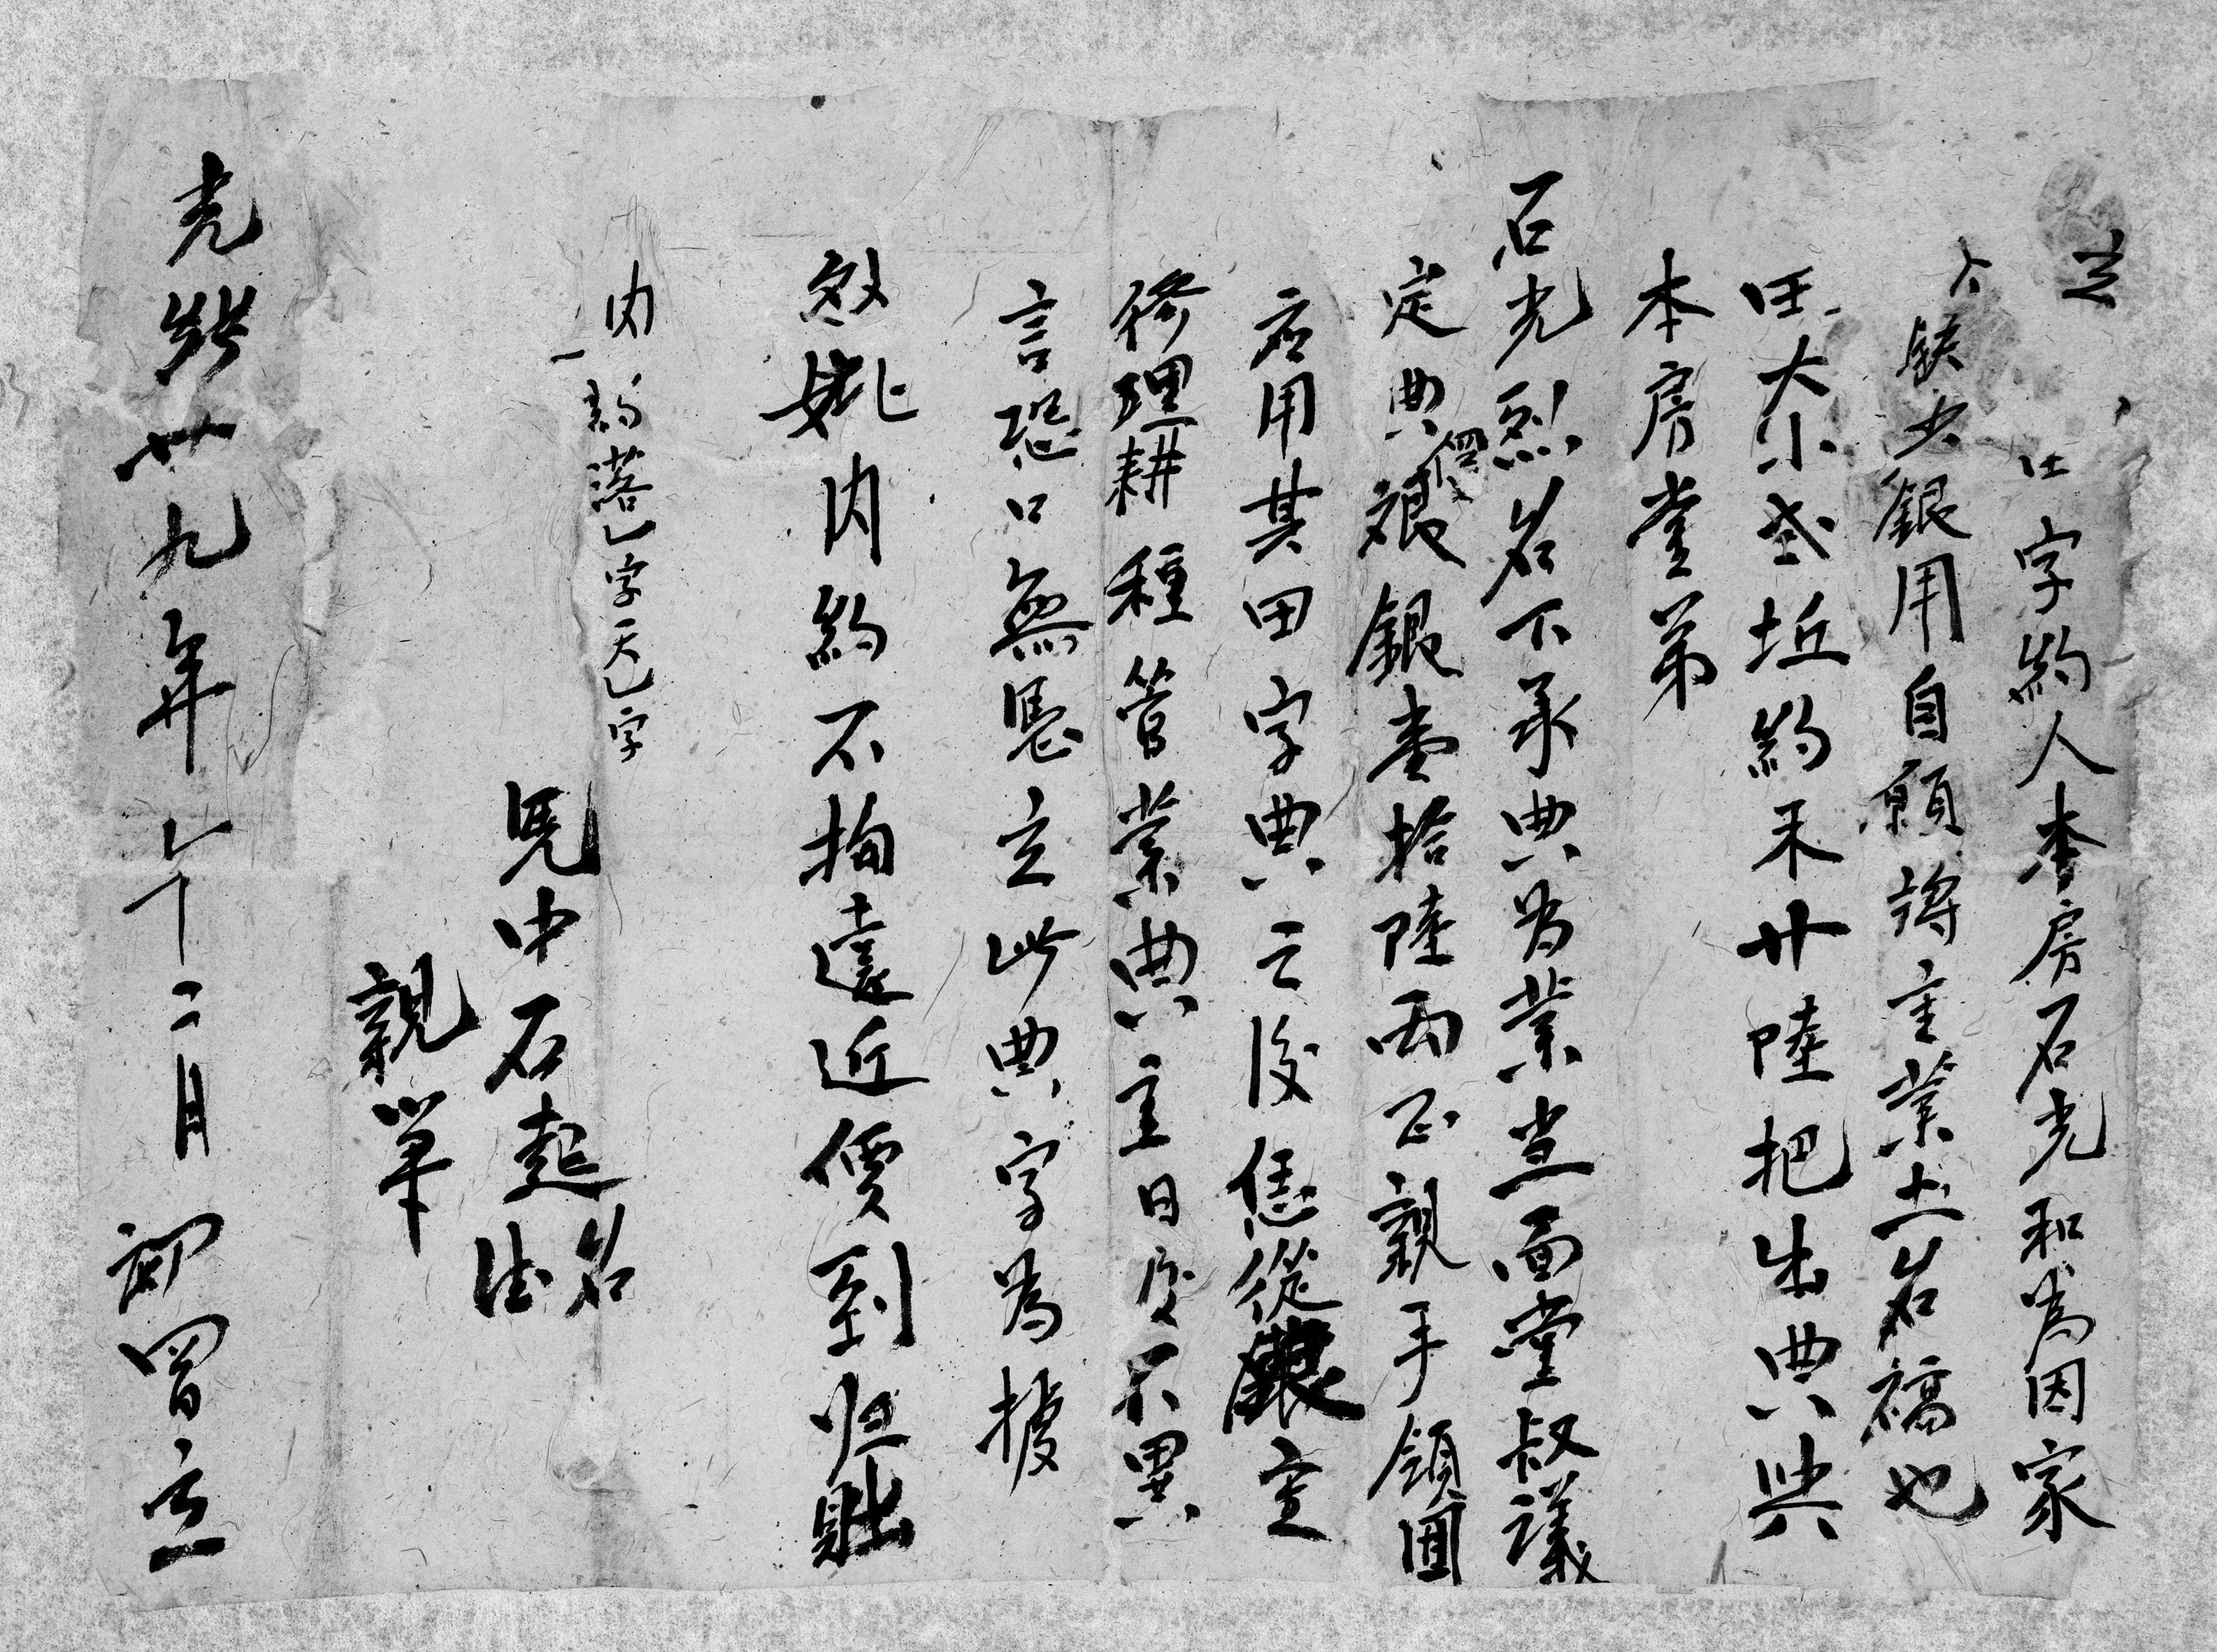 立
字約人本房石光和為因家
缺少銀用自願將主業土名橋也
田大小叁坵約禾廿陸把出典與
本房堂弟
石光烈名下承典為業当面堂叔議
定典價銀壹拾陸両正親手領回
应用其田字典之後恁從銀主
修理耕種管業典主日後不異
言恐口無凴立此典字為據
內約不拘遠近價到归贖
內一約落一字天一字
凴中石起德名
親筆
光緒廿九年十二月初四日立